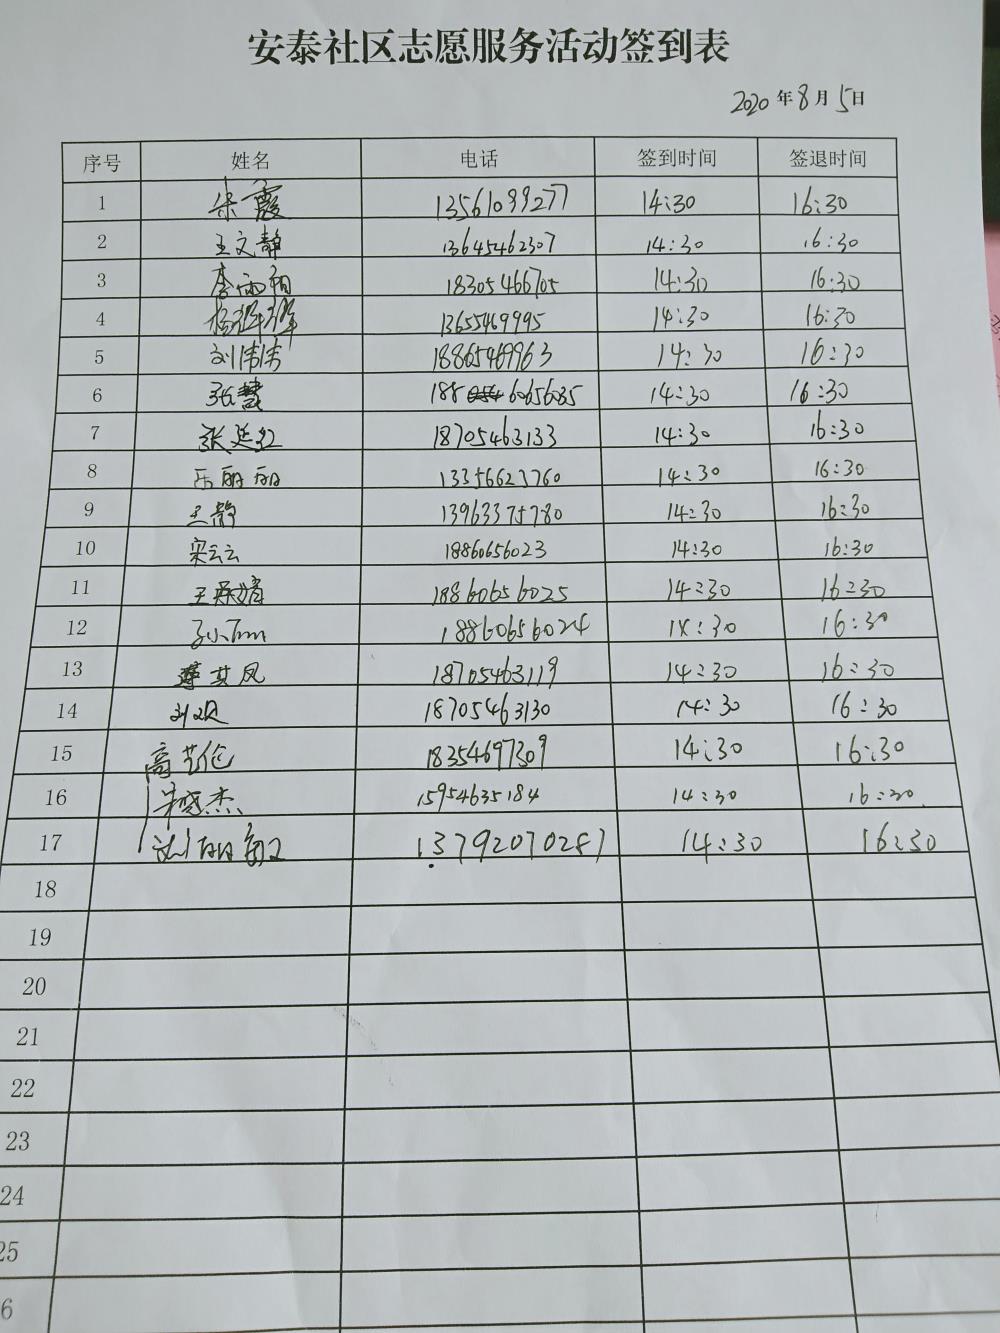 安泰社区志愿服务活动签到表
2020年8月5日
序号 姓名 电话 签到时间 签退时间
1 朱霞 13561099277 14:30 16:30
2 王文静 13645462307 14:30 16:30
3 李雨翔 18305466705 14:30 16:30
4 杨婷婷 13655469995 14:30 16:30
5 刘伟伟 18865469963 14:30 16:30
6 张慧 18860656035 14:30 16:30
7 张延红 18705463133 14:30 16:30
8 丽丽 13356623760 14:30 16:30
9 王静 13963375780 14:30 16:30
10 宋云云 18860656023 14:30 16:30
11 王 18860656025 14:30 16:30
12 18860656024 14:30 16:30
13 艾凤 18705463119 14:30 16:30
14 刘 18705463130 14:30 16:30
15 高艺伦 18354697309 14:30 16:30
16 朱杰 15954635184 14:30 16:30
17 13792070287 14:30 16:30
18
19
20
21
22
23
24
25
6